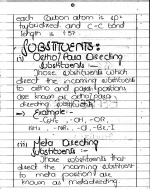 each Carbon atom is sp²
hybridized and C-C bond
length is 1.39
SUBSTITUENTS:
(i) Ortho/Para Directing
Substituents -
Those substituents which
direct the incoming substituents
to ortho and para positions
are known as ortho/para
directing substituents.
Example:-
-OH, -OR,
-NH₂, -NR₂, -Cl, -Br, -I
(ii) Meta Directing
Substituents -
Those substituents that
direct the incoming substituents
to meta position are
known as meta directing.